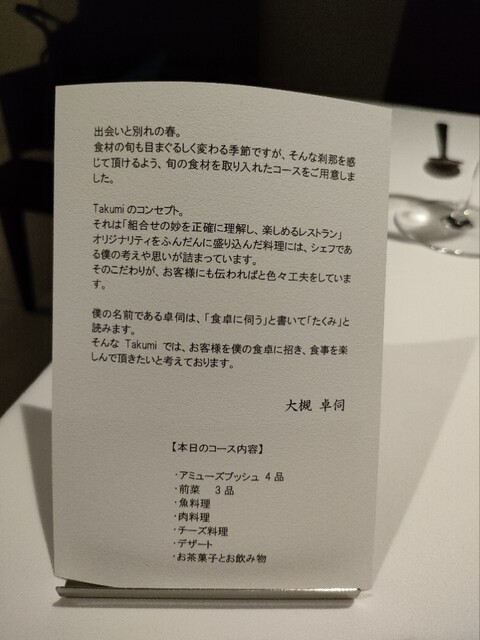 出会いと別れの春。
食材の旬も目まぐるしく変わる季節ですが、そんな刹那を感
じて頂けるよう、旬の食材を取り入れたコースをご用意しま
した。
Takumiのコンセプト。
それは「組合せの妙を正確に理解し、楽しめるレストラン」
オリジナリティをふんだんに盛り込んだ料理には、シェフであ
る僕の考えや思いが詰まっています。
そのこだわりが、お客様にも伝わればと色々工夫をしていま
す。
僕の名前である卓伺は、「食卓に伺う」と書いて「たくみ」と
読みます。
そんな Takumi では、お客様を僕の食卓に招き、食事を楽
しんで頂きたいと考えております。
大槻 卓伺
【本日のコース内容】
・アミューズブッシュ 4品
・前菜 3品
・魚料理
・肉料理
・チーズ料理
・デザート
・お茶菓子とお飲み物